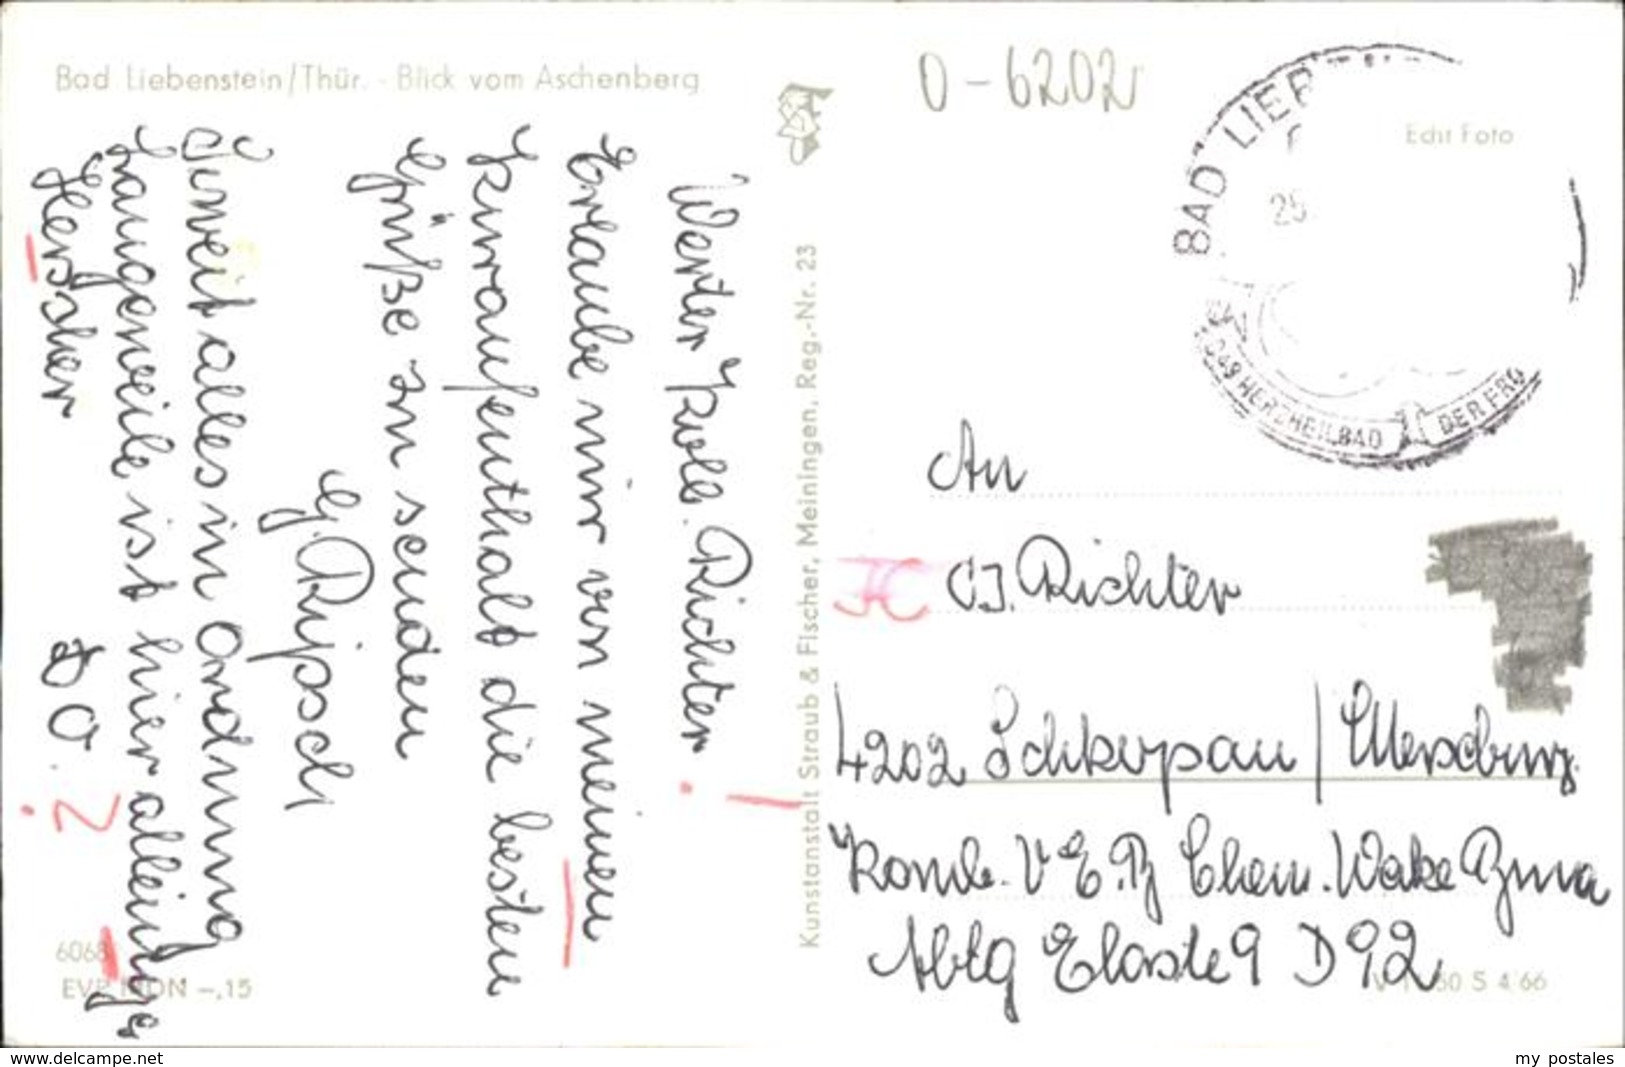 Bad Liebenstein/Thür. - Blick vom Aschenberg
Werter Koll. Richter.
Erlaube mir von meinen
Kuraufenthalt die besten
Grüße zu senden
G. Ripsch
Soweit alles in Ordnung
Langeweile ist hier alleiniger
Herscher
?
6068
EVP MDN -,15
Kunstanstalt Straub & Fischer, Meiningen, Reg.-Nr. 23
0-6202
Echt Foto
BAD LIEB
25
DAS HERZHEILBAD
DER
An
O. Richter
4202 Schkopau / Merseburg
Komb. VEB Chem. Werke Buna
Abtg Elaste 9 D 92
50 S 4 66
www.delcampe.net
my postales